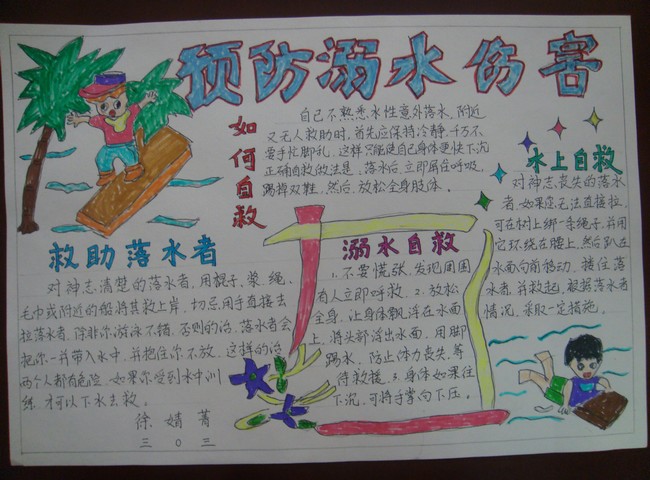 预防溺水伤害
如何自救
自己不熟悉水性意外落水,附近
又无人救助时,首先应保持冷静,千万不
要手忙脚乱,这样只能使自己身体更快下沉
正确自救做法是:落水后立即屏住呼吸,
踢掉双鞋,然后放松全身肢体.
水上自救
对神志丧失的落水
者,如果您无法直接拉,
可在树上绑一条绳子,并用
它环绕在腰上,然后趴在
水面向前移动,搂住落
水者,并救起,根据落水者
情况,采取一定措施。
救助落水者
对神志清楚的落水者,用棍子、桨、绳、
毛巾或附近的船将其救上岸,切忌用手直接去
拉落水者,除非你游泳不错,否则的话,落水者会
把你一并带入水中,并抱住你不放,这样的话
两个人都有危险,如果你受到水中训
练,才可以下水去救。
徐婧菁
三〇三
溺水自救
1.不要慌张,发现周围
有人立即呼救,2.放松
全身,让身体飘浮在水面
上,将头部浮出水面,用脚
踢水,防止体力丧失,等
待救援,3.身体如果往
下沉,可将手掌向下压。